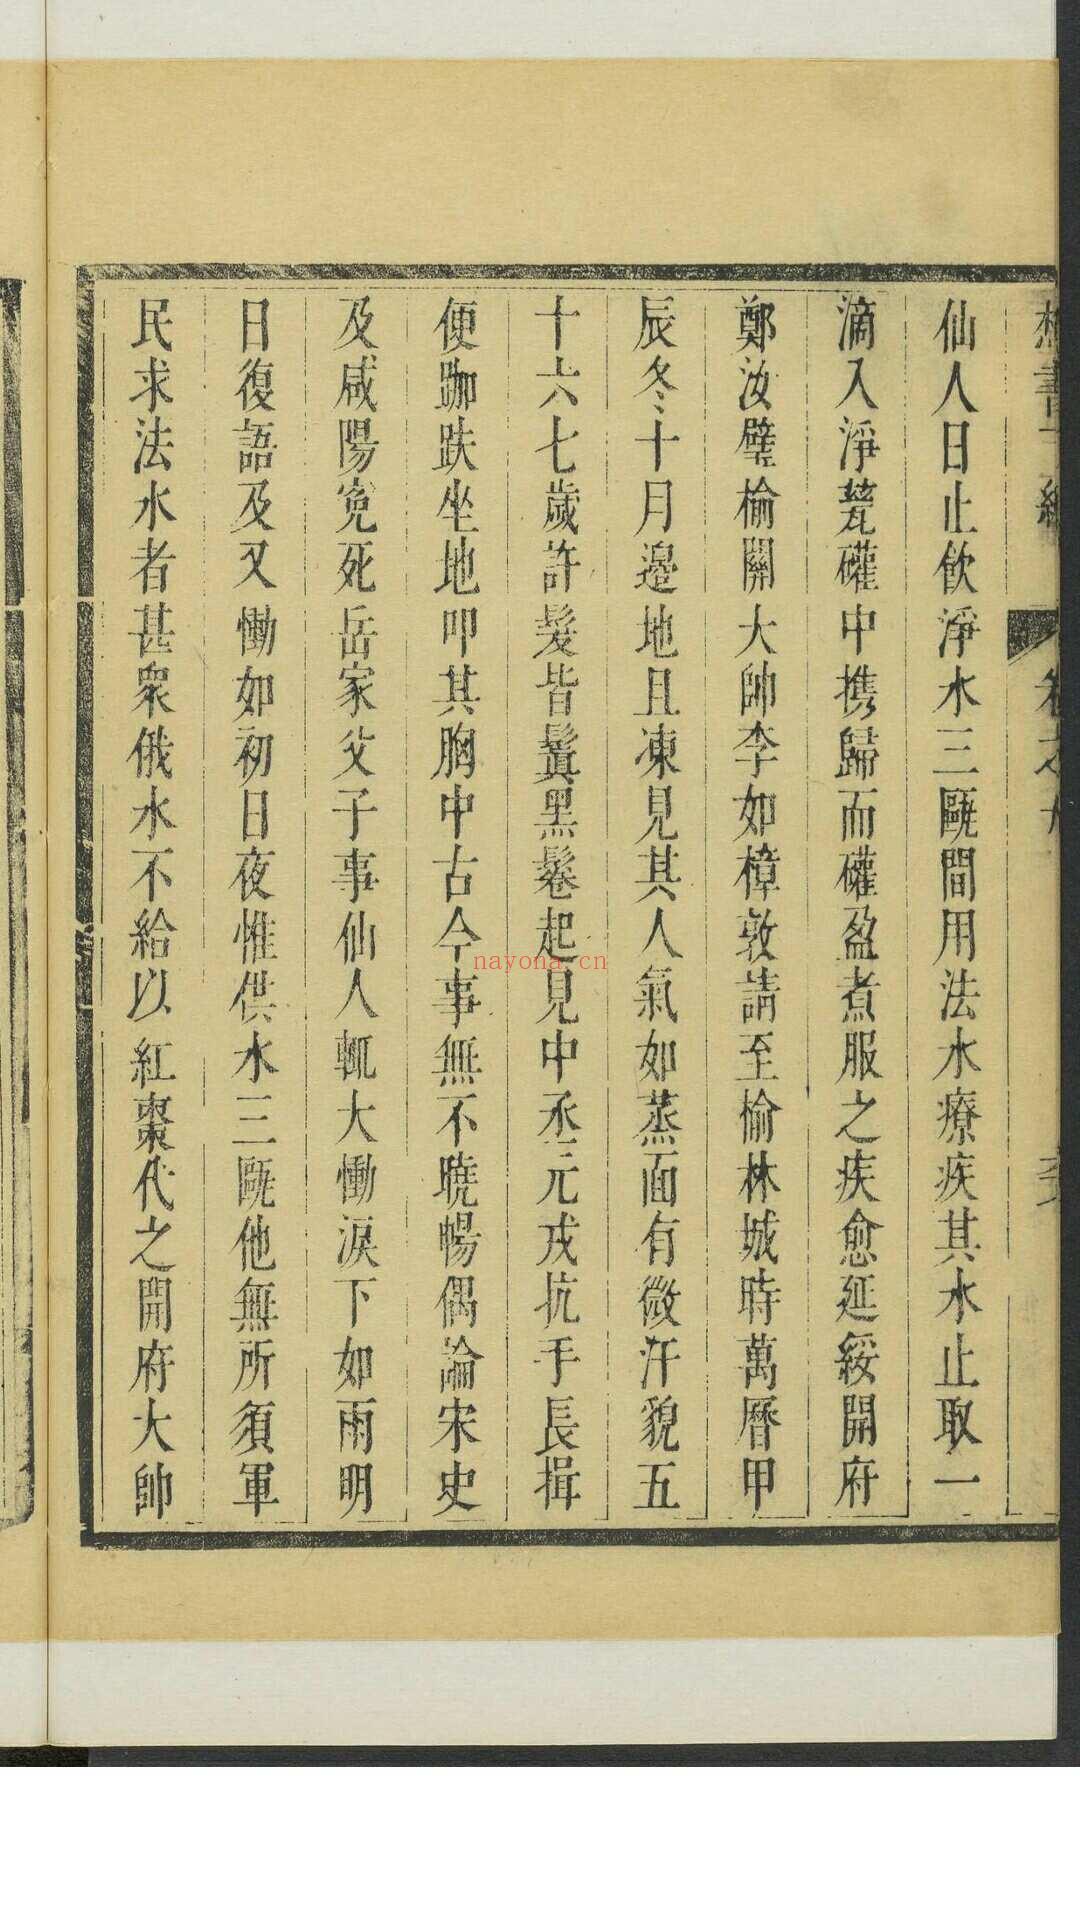 仙人日止飲淨水三甌間用法水療疾其水止取一
滴入淨甆礶中携歸而礶盈煮服之疾愈延綏開府
鄭汝璧榆關大帥李如樟敦請至榆林城時萬曆甲
辰冬十月邊地且凍見其人氣如蒸面有微汗貌五
十六七歲許髮皆鬒黑鬈起見中丞元戎抗手長揖
便跏趺坐地叩其胸中古今事無不曉暢偶論宋史
及咸陽冤死岳家父子事仙人輒大慟淚下如雨明
日復語及又慟如初日夜惟供水三甌他無所須軍
民求法水者甚衆俄水不給以紅棗代之開府大帥
nayona.cn